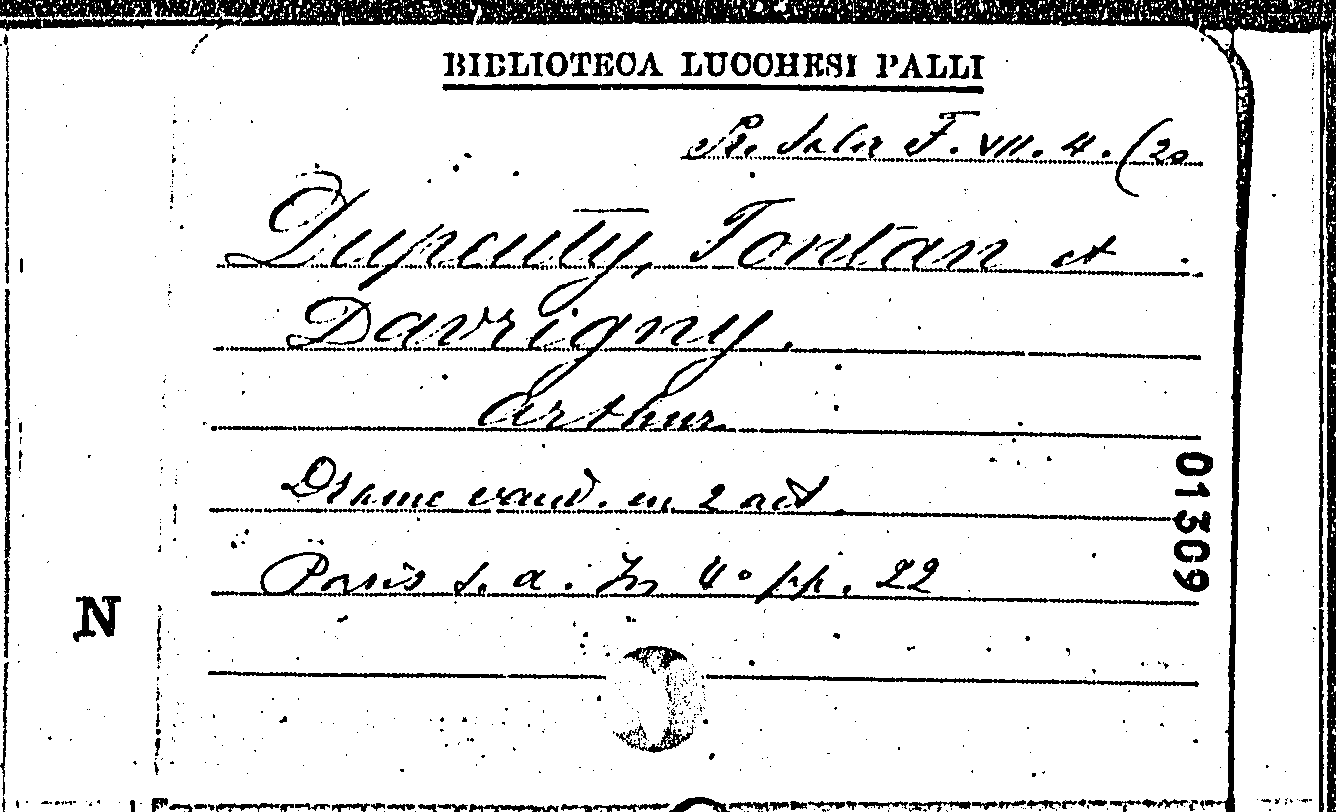 BIBLIOTECA LUCCHESI PALLI
F. VII. 4. (20
Dupeuty, Fontan et
Davrigny.
Arthur
Drame vaud. en 2 act.
Paris s. a. In 4° pp. 22
01309
N